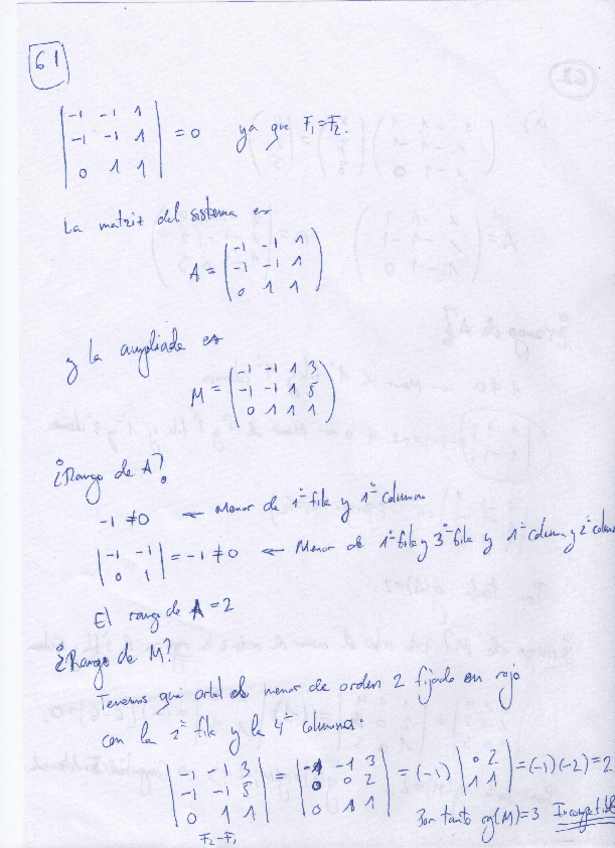 61
| -1 -1 1 |
| -1 -1 1 | = 0 ya que F₁=F₂.
| 0 1 1 |
La matriz del sistema es
( -1 -1 1 )
A = ( -1 -1 1 )
( 0 1 1 )
y la ampliada es
( -1 -1 1 3 )
M = ( -1 -1 1 5 )
( 0 1 1 1 )
¿Rango de A?
-1 ≠0 ← Menor de 1ª fila y 1ª columna
| -1 -1 |
| 0 1 | = -1 ≠0 ← Menor de 1ª fila y 3ª fila y 1ª column y 2ª colum
El rango de A = 2
¿Rango de M?
Tenemos que orlal el menor de orden 2 fijado en rojo
con la 2ª fila y la 4ª columna:
| -1 -1 3 | | -1 -1 3 |
| -1 -1 5 | = | 0 0 2 | = (-1) | 0 2 | = (-1)(-2) = 2
| 0 1 1 | | 0 1 1 | | 1 1 |
F₂-F₁
Por tanto rg(M)=3 Incompatible